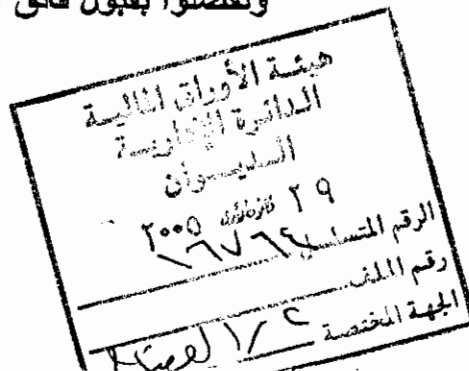 وتفضلوا بقبول فائق
هيئة الأوراق المالية
الدائرة الإدارية
الديوان
٢٩ ٢٠٠٥
الرقم المتسلسل ١٦٧٦٤
رقم الملف
الجهة المختصة ١/٢